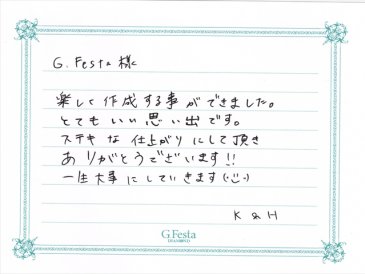 G.Festa 様に
楽しく作成する事ができました。
とてもいい思い出です。
ステキな仕上がりにして頂き
ありがとうございます!!
一生大事にしていきます(･ｰ･)
K & H
G.Festa
DIAMOND